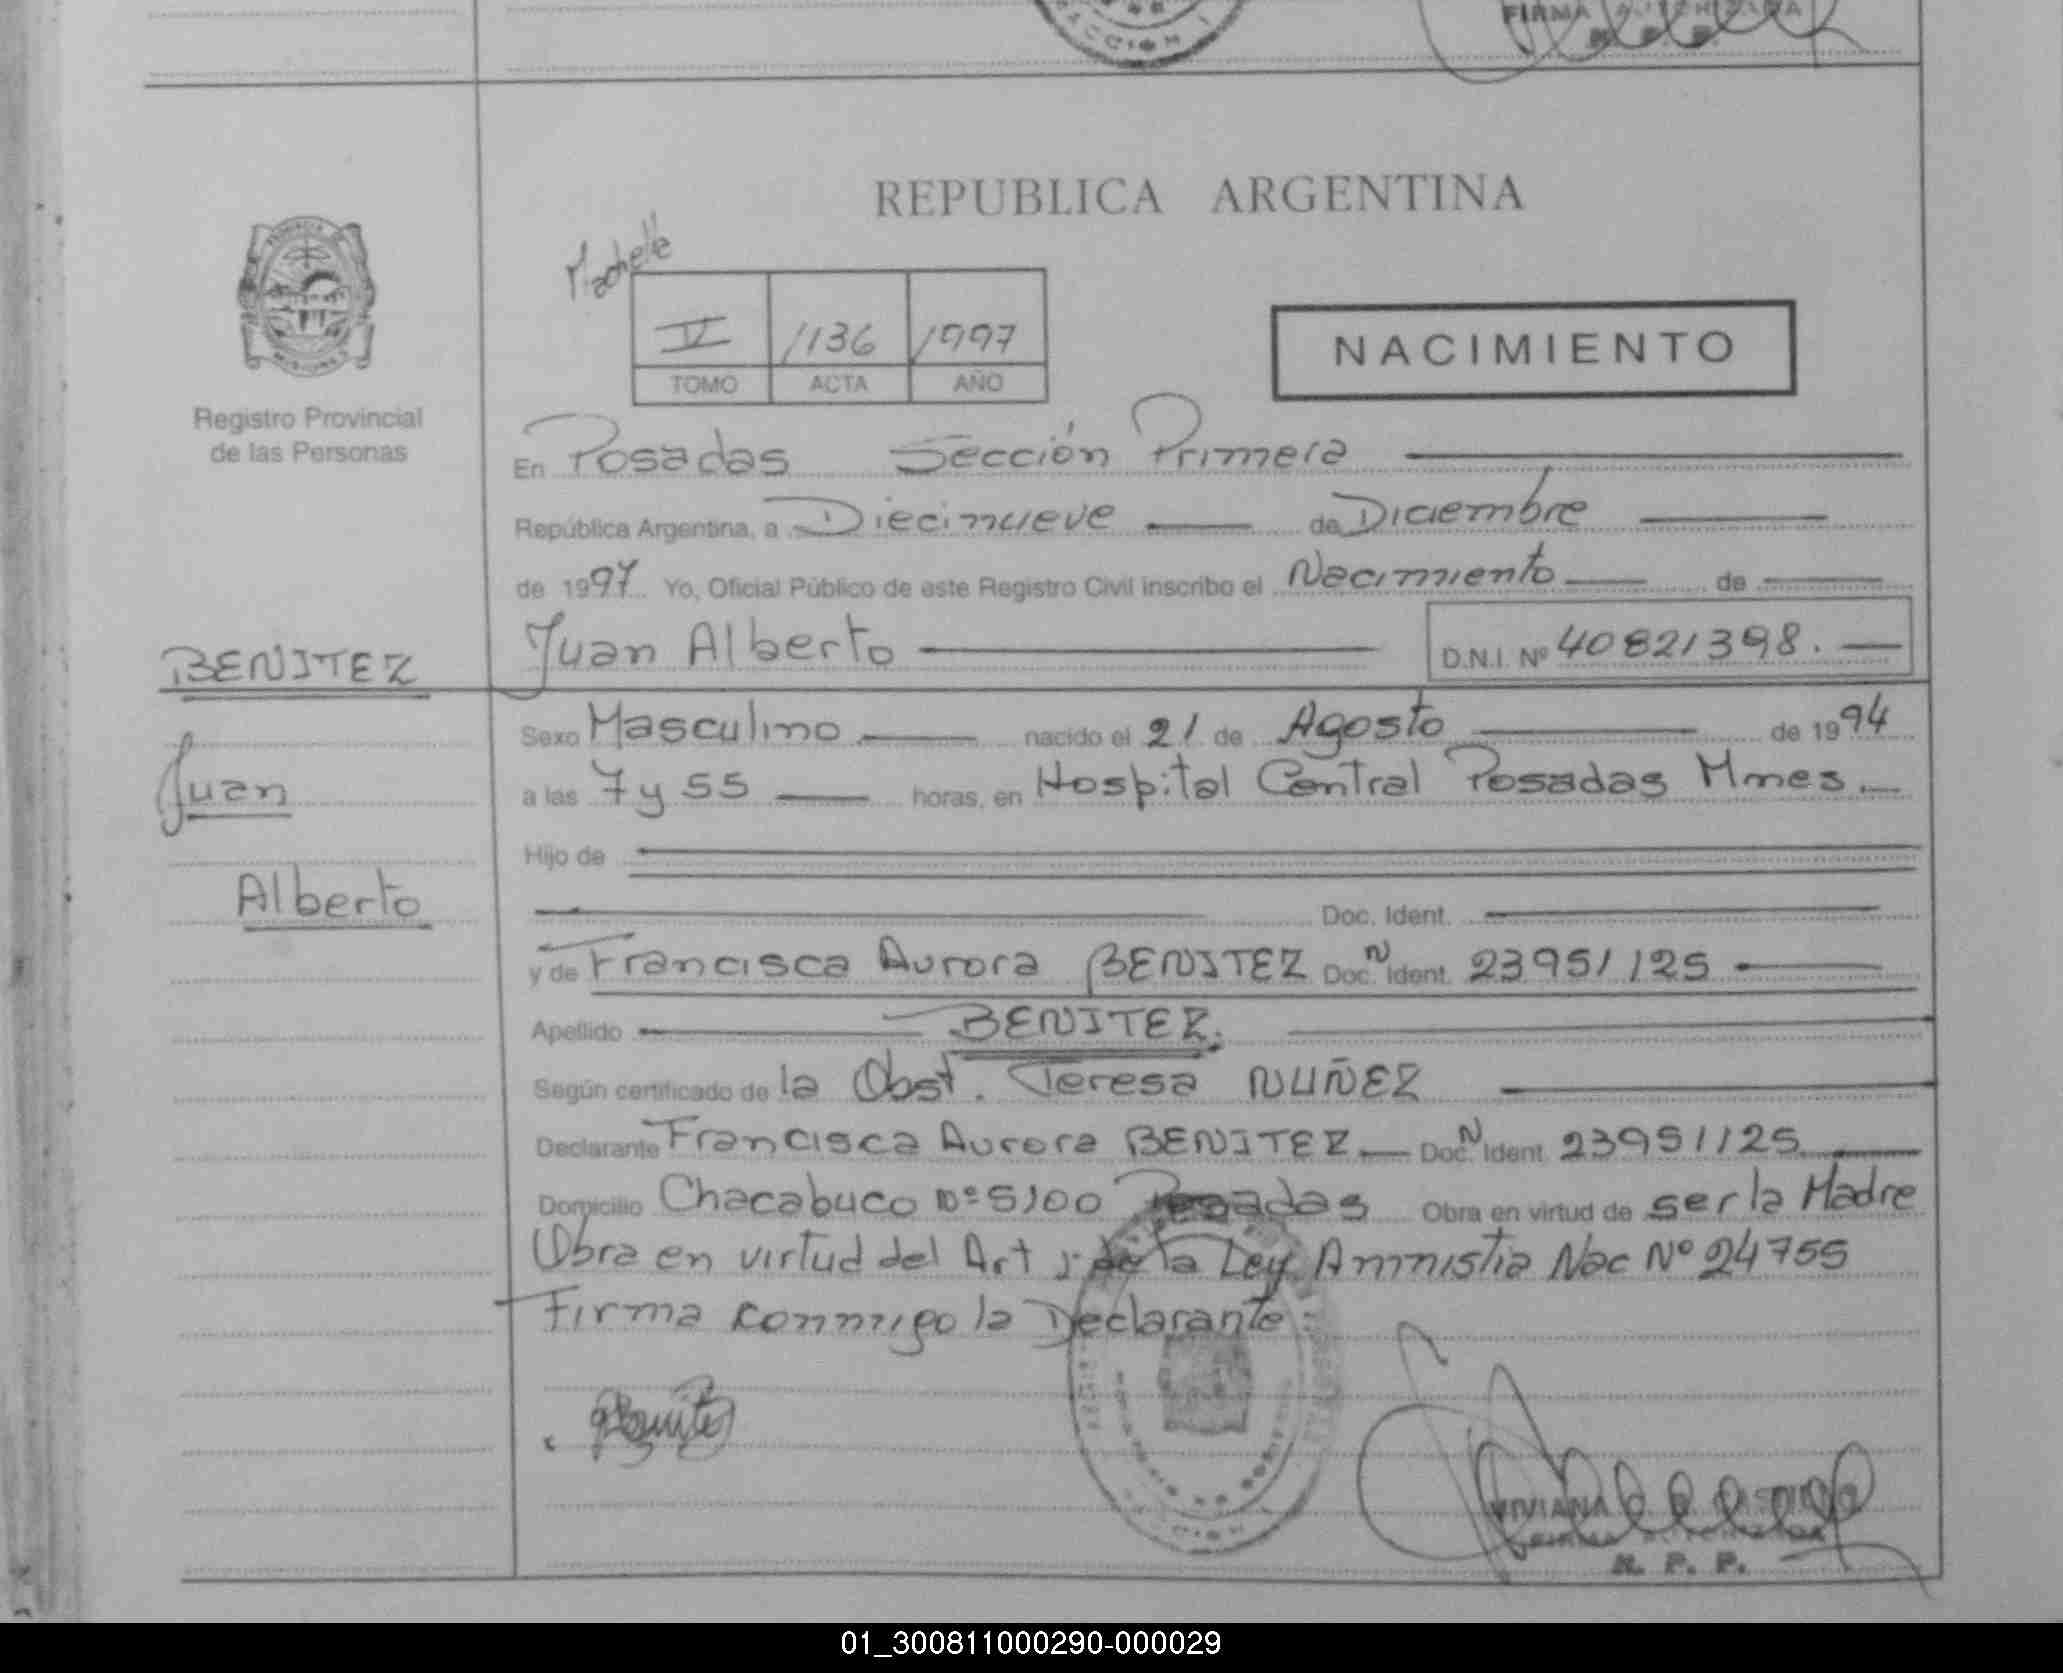 FIRMA AUTORIZADA
REPUBLICA ARGENTINA
Machete
V 1136 1997
TOMO ACTA AÑO
NACIMIENTO
Registro Provincial
de las Personas
En Posadas Sección Primera
República Argentina, a Diecinueve de Diciembre
de 1997 Yo, Oficial Público de este Registro Civil inscribo el Nacimiento de
BENITEZ
Juan Alberto D.N.I. Nº 40821398.
Sexo Masculino nacido el 21 de Agosto de 1994
Juan
a las 7 y 55 horas, en Hospital Central Posadas Mnes.
Hijo de
Alberto
Doc. Ident.
y de Francisca Aurora BENITEZ Doc. N Ident. 23951125
Apellido BENITEZ.
Según certificado de la Obst. Teresa NUÑEZ
Declarante Francisca Aurora BENITEZ Doc. N Ident. 23951125
Domicilio Chacabuco Nº 5100 Posadas Obra en virtud de ser la Madre
Obra en virtud del Art 1º de la Ley Amnistia Nac Nº 24755
Firma conmigo la Declarante:
VIVIANA
R. P. P.
01_300811000290-000029